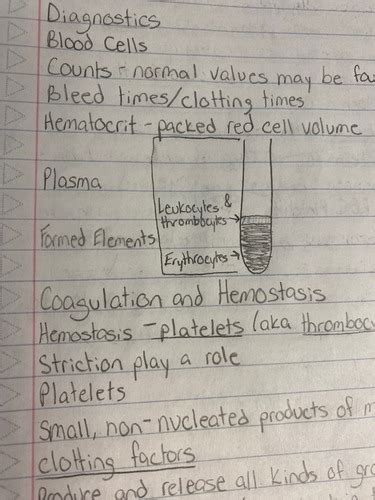 Diagnostics
Blood Cells
Counts - normal values may be
Bleed times/clotting times
Hematocrit - packed red cell volume
Plasma
Leukocytes &
thrombocytes
Formed Elements
Erythrocytes
Coagulation and Hemostasis
Hemostasis - platelets (aka thrombocy
Striction play a role
Platelets
Small, non-nucleated products of m
clotting factors
Produce and release all kinds of gr